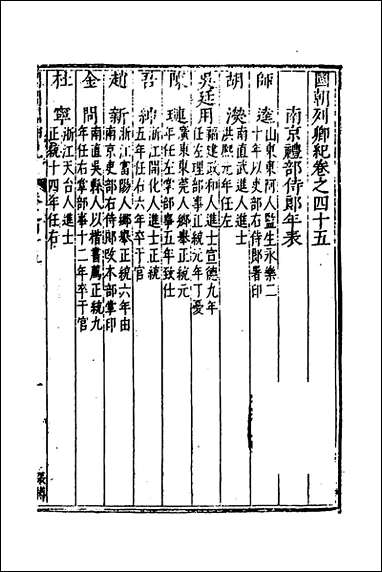 國朝列卿紀卷之四十五
南京禮部侍郎年表
師逵 山東東阿人監生永樂二
十年以吏部右侍郎署印
胡濙 南直武進人進士
洪熙元年任左
吳廷用 福建政和人進士宣德九年
任左理部事正統元年丁憂
陳璉 廣東東莞人鄉舉正統元
年任左掌部事五年致仕
吾紳 浙江開化人進士正統
五年任右六年卒于官
趙新 浙江富陽人鄉舉正統六年由
南京吏部右侍郎改本部掌印
金問 南直吳縣人以楷書薦正統九
年任右掌部事十二年卒于官
杜寧 浙江天台人進士
正統十四年任右